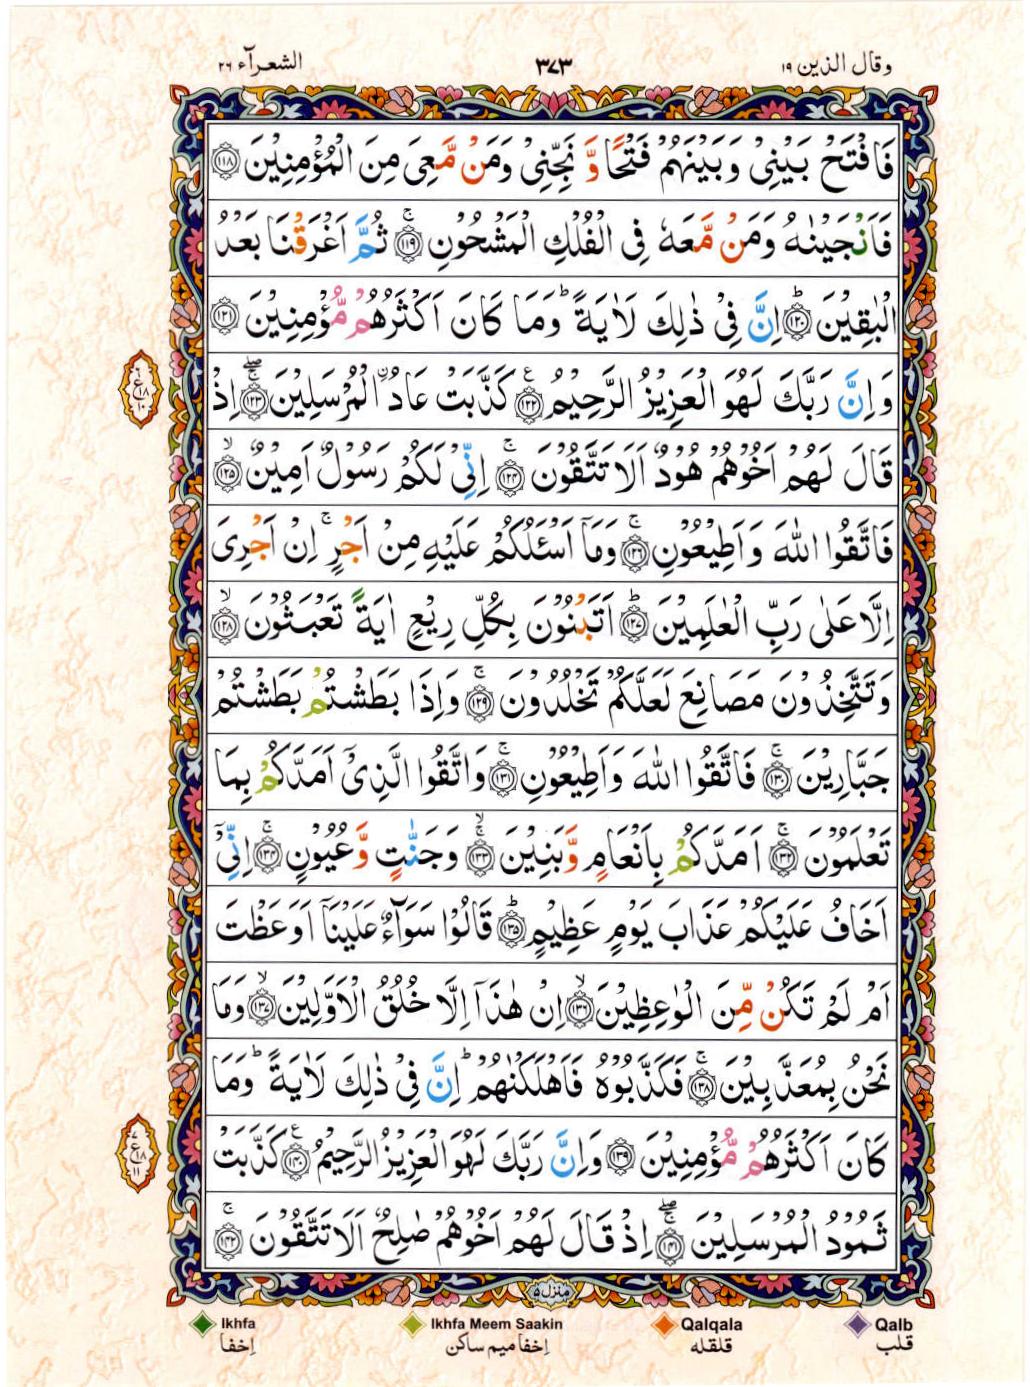 وقال الذين ١٩
٣٧٣
الشعرآء ٢٦
فَافْتَحْ بَیْنِیْ وَ بَیْنَهُمْ فَتْحًا وَّ نَجِّنِیْ وَمَنْ مَّعِیَ مِنَ الْمُؤْمِنِیْنَ ﴿۱۱۸﴾
فَاَنْجَیْنٰهُ وَمَنْ مَّعَهٗ فِی الْفُلْكِ الْمَشْحُوْنِ ۚ﴿۱۱۹﴾ ثُمَّ اَغْرَقْنَا بَعْدُ
الْبٰقِیْنَ ؕ﴿۱۲۰﴾ اِنَّ فِیْ ذٰلِكَ لَاٰیَةً ؕ وَمَا كَانَ اَكْثَرُهُمْ مُّؤْمِنِیْنَ ﴿۱۲۱﴾
وَ اِنَّ رَبَّكَ لَهُوَ الْعَزِیْزُ الرَّحِیْمُ ﴿۱۲۲﴾ كَذَّبَتْ عَادُ ۨالْمُرْسَلِیْنَ ﴿۱۲۳﴾ اِذْ
قَالَ لَهُمْ اَخُوْهُمْ هُوْدٌ اَلَا تَتَّقُوْنَ ۚ﴿۱۲۴﴾ اِنِّیْ لَكُمْ رَسُوْلٌ اَمِیْنٌ ۙ﴿۱۲۵﴾
فَاتَّقُوا اللّٰهَ وَ اَطِیْعُوْنِ ۚ﴿۱۲۶﴾ وَمَاۤ اَسْـَٔلُكُمْ عَلَیْهِ مِنْ اَجْرٍ ۚ اِنْ اَجْرِیَ
اِلَّا عَلٰی رَبِّ الْعٰلَمِیْنَ ؕ﴿۱۲۷﴾ اَتَبْنُوْنَ بِكُلِّ رِیْعٍ اٰیَةً تَعْبَثُوْنَ ۙ﴿۱۲۸﴾
وَ تَتَّخِذُوْنَ مَصَانِعَ لَعَلَّكُمْ تَخْلُدُوْنَ ۚ﴿۱۲۹﴾ وَ اِذَا بَطَشْتُمْ بَطَشْتُمْ
جَبَّارِیْنَ ۚ﴿۱۳۰﴾ فَاتَّقُوا اللّٰهَ وَ اَطِیْعُوْنِ ۚ﴿۱۳۱﴾ وَ اتَّقُوا الَّذِیْۤ اَمَدَّكُمْ بِمَا
تَعْلَمُوْنَ ۚ﴿۱۳۲﴾ اَمَدَّكُمْ بِاَنْعَامٍ وَّ بَنِیْنَ ۚۙ﴿۱۳۳﴾ وَ جَنّٰتٍ وَّ عُیُوْنٍ ۚ﴿۱۳۴﴾ اِنِّیْۤ
اَخَافُ عَلَیْكُمْ عَذَابَ یَوْمٍ عَظِیْمٍ ؕ﴿۱۳۵﴾ قَالُوْا سَوَآءٌ عَلَیْنَاۤ اَوَعَظْتَ
اَمْ لَمْ تَكُنْ مِّنَ الْوٰعِظِیْنَ ۙ﴿۱۳۶﴾ اِنْ هٰذَاۤ اِلَّا خُلُقُ الْاَوَّلِیْنَ ۙ﴿۱۳۷﴾ وَمَا
نَحْنُ بِمُعَذَّبِیْنَ ۚ﴿۱۳۸﴾ فَكَذَّبُوْهُ فَاَهْلَكْنٰهُمْ ؕ اِنَّ فِیْ ذٰلِكَ لَاٰیَةً ؕ وَمَا
كَانَ اَكْثَرُهُمْ مُّؤْمِنِیْنَ ﴿۱۳۹﴾ وَ اِنَّ رَبَّكَ لَهُوَ الْعَزِیْزُ الرَّحِیْمُ ﴿۱۴۰﴾ كَذَّبَتْ
ثَمُوْدُ الْمُرْسَلِیْنَ ﴿۱۴۱﴾ اِذْ قَالَ لَهُمْ اَخُوْهُمْ صٰلِحٌ اَلَا تَتَّقُوْنَ ۚ﴿۱۴۲﴾
منزل ۵
Ikhfa Ikhfa Meem Saakin Qalqala Qalb
اِخفا اِخفا میم ساکن قلقله قلب